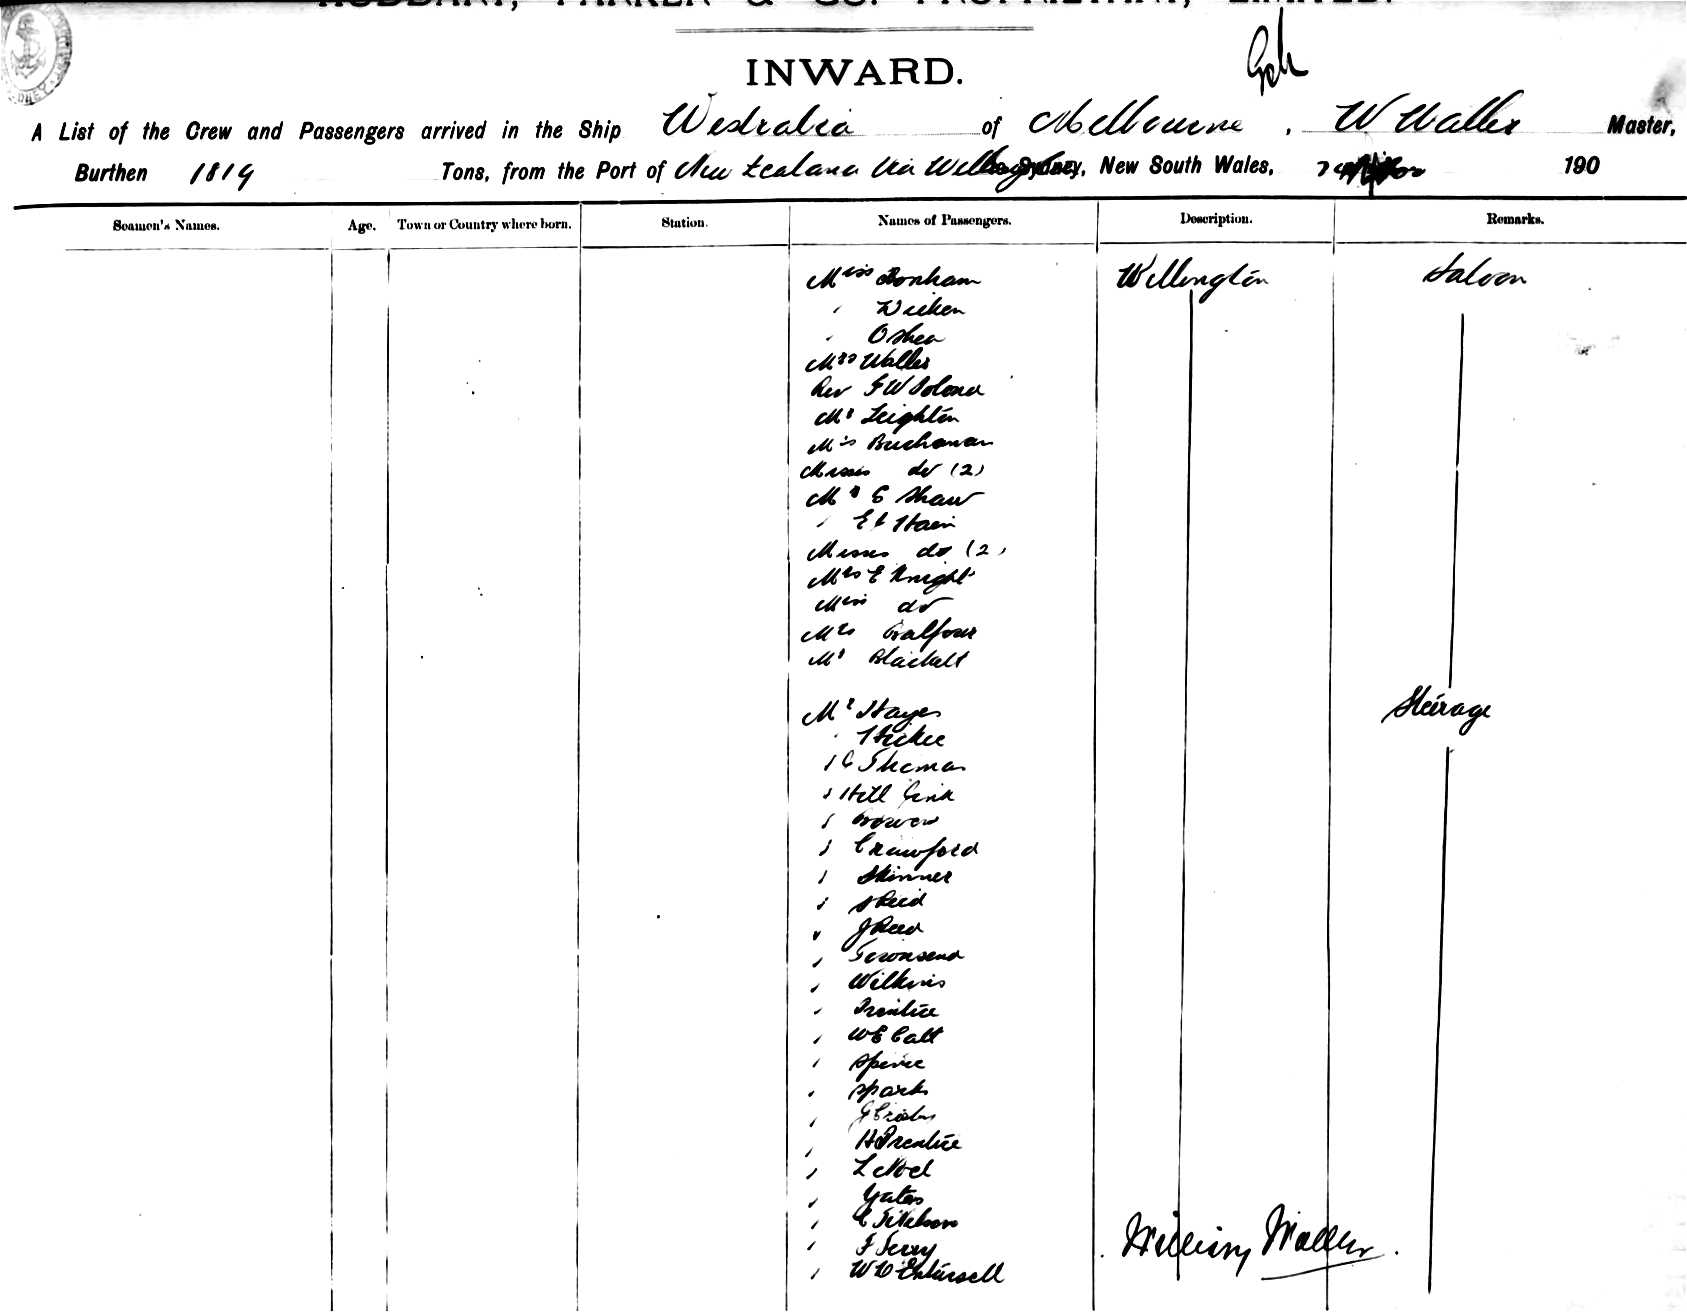 HUDDART, PARKER & CO. PROPRIETARY, LIMITED.
INWARD.
A List of the Crew and Passengers arrived in the Ship Westralia of Melbourne, W Waller Master,
Burthen 1819 Tons, from the Port of New Zealand Via Wellington to Sydney, New South Wales, 190
Seamen's Names. Age. Town or Country where born. Station. Names of Passengers. Description. Remarks.
Miss Bonham Wellington Saloon
" Wicken
" Oshea
Mrs Waller
Rev G W Poland
Mr Leighton
Mrs Buchanan
Misses do (2)
Mr E Shaw
" Hain
Misses do (2)
Mrs E Knight
Miss do
Mrs Balfour
Mr Blackett
Mr Hayes Steerage
" Hickee
" C Thomas
" Hill
" Bowen
" Crawford
" Skinner
" Reid
" J Reed
" Townsend
" Wilkins
" Prentice
" W E Catt
" Spence
" Sparks
"
" H Prentice
" L Noel
" Yates
"
" F Terry
" W
William Waller